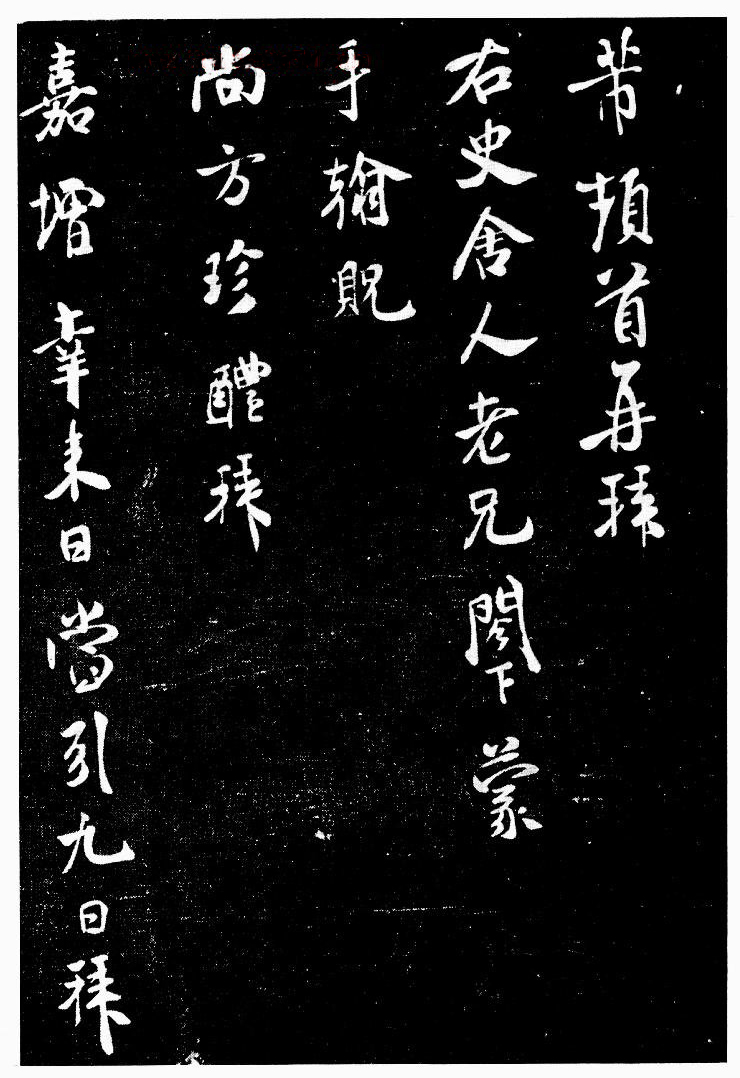 芾頓首再拜
右史舍人老兄閣下蒙
手翰貺
尚方珍醴拜
嘉增幸来日當引九日拜